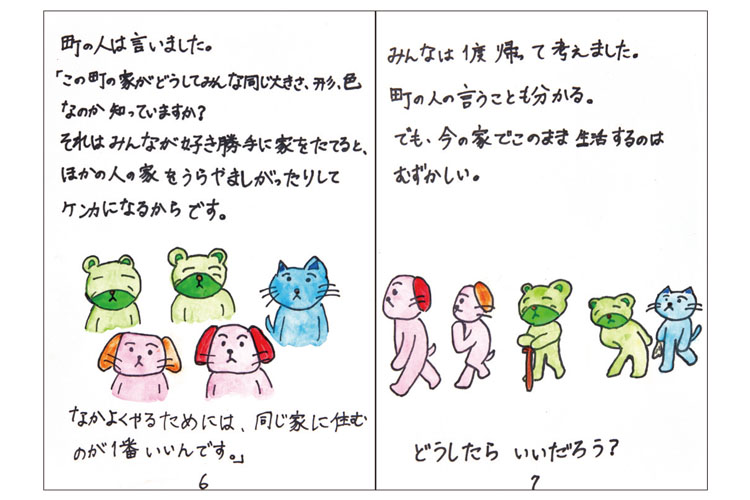 町の人は言いました。
「この町の家がどうしてみんな同じ大きさ、形、色
なのか知っていますか?
それはみんなが好き勝手に家をたてると、
ほかの人の家をうらやましがったりして
ケンカになるからです。
なかよくやるためには、同じ家に住む
のが1番いいんです。」
6
みんなは1度帰って考えました。
町の人の言うことも分かる。
でも、今の家でこのまま生活するのは
むずかしい。
どうしたらいいだろう?
7